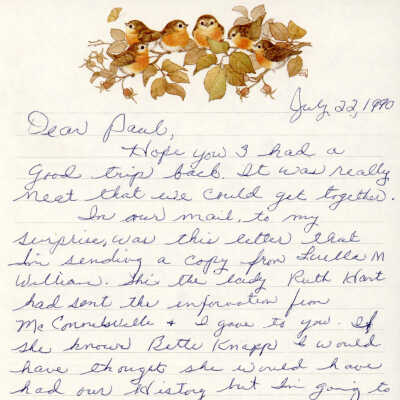 July 22, 1990
Dear Paul,
Hope you 3 had a
good trip back. It was really
neat that we could get together.
In our mail, to my
surprise, was this letter that
I'm sending a copy from Luella M
William. She the lady Ruth Hart
had sent the information from
McConnelsville & I gave to you. If
she knows Bette Knapp I would
have thought she would have
had our History but I'm going to